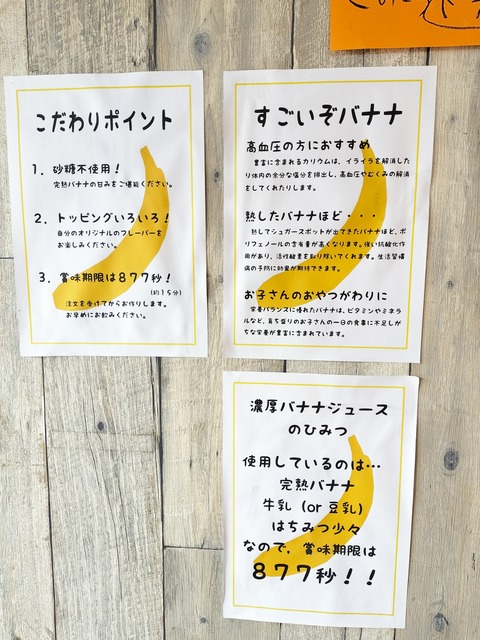 こだわりポイント
1. 砂糖不使用！
完熟バナナの甘みをご堪能ください。
2. トッピングいろいろ！
自分のオリジナルのフレーバーを
お楽しみください。
3. 賞味期限は877秒！
(約15分)
注文を受けてからお作りします。
お早めにお飲みください。
すごいぞバナナ
高血圧の方におすすめ
豊富に含まれるカリウムは、イライラを解消した
り体内の余分な塩分を排出し、高血圧やむくみの解消
をしてくれたりします。
熟したバナナほど・・・
熟してシュガースポットが出てきたバナナほど、ポ
リフェノールの含有量が高くなります。強い抗酸化作
用があり、活性酸素を取り除いてくれます。生活習慣
病の予防に効果が期待できます。
お子さんのおやつがわりに
栄養バランスに優れたバナナは、ビタミンやミネラ
ルなど、育ち盛りのお子さんの一日の食事に不足しが
ちな栄養が豊富に含まれています。
濃厚バナナジュース
のひみつ
使用しているのは…
完熟バナナ
牛乳（or 豆乳）
はちみつ少々
なので、賞味期限は
877秒！！